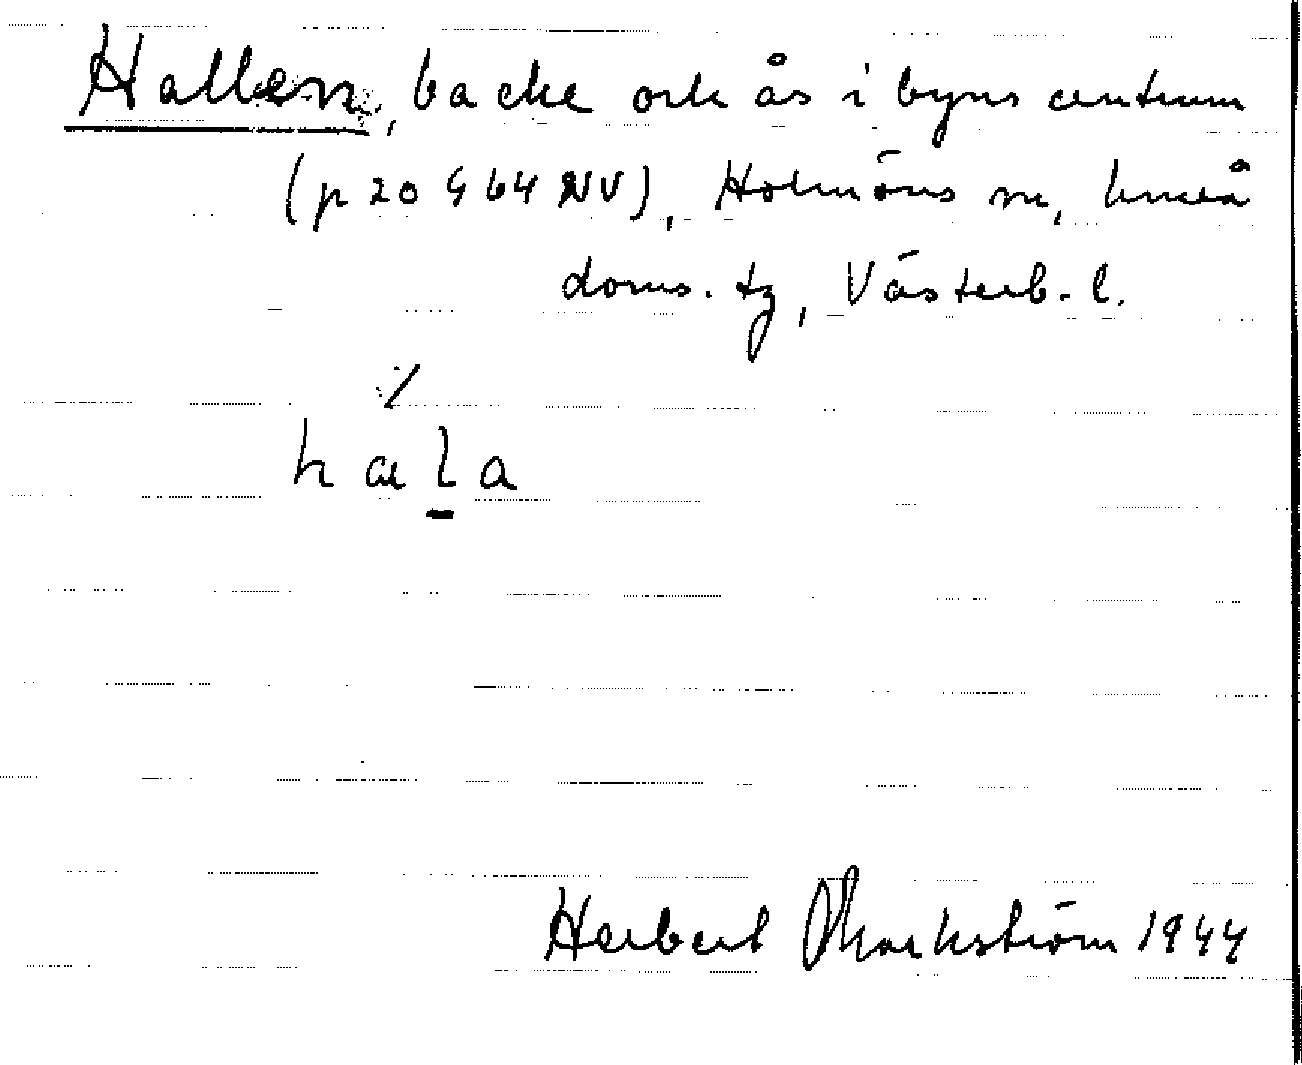 Hallen, backe och ås i byns centrum
(p 20 464 NV), Holmöns sn, Umeå
doms. tg, Västerb. l.
hala
Herbert Markström 1944